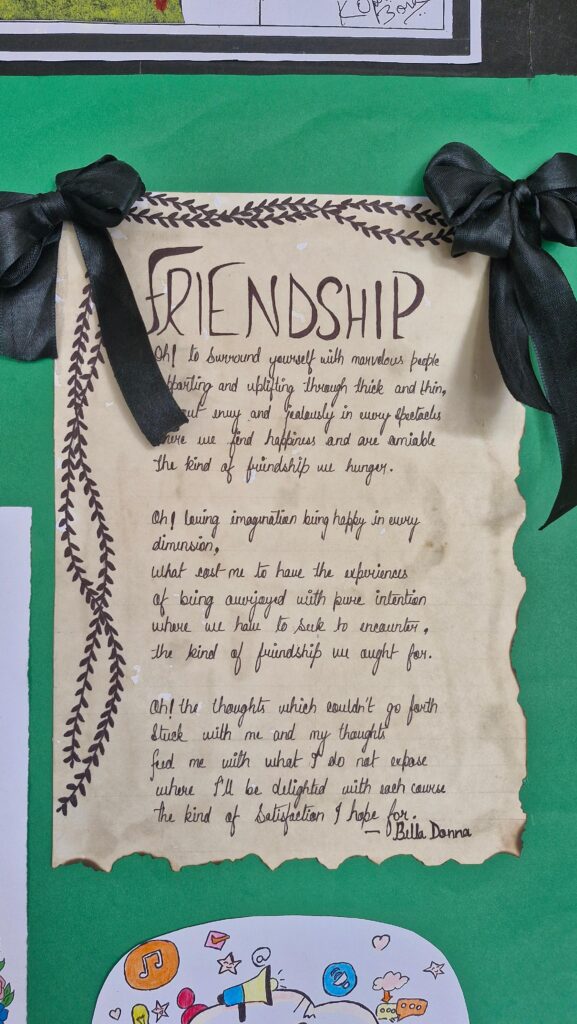 FRIENDSHIP
Oh! to surround yourself with marvelous people
and uplifting through thick and thin,
envy and jealously in every spectacles
we find happiness and are amiable
the kind of friendship we hunger.
Oh! loving imagination being happy in every
dimension,
What cost me to have the experiences
of being overjoyed with pure intention
where we have to seek to encounter,
the kind of friendship we aught for.
Oh! the thoughts which couldn't go forth
Stuck with me and my thoughts
feed me with what I do not expose
where I'll be delighted with each course
the kind of Satisfaction I hope for.
— Bella Donna
@